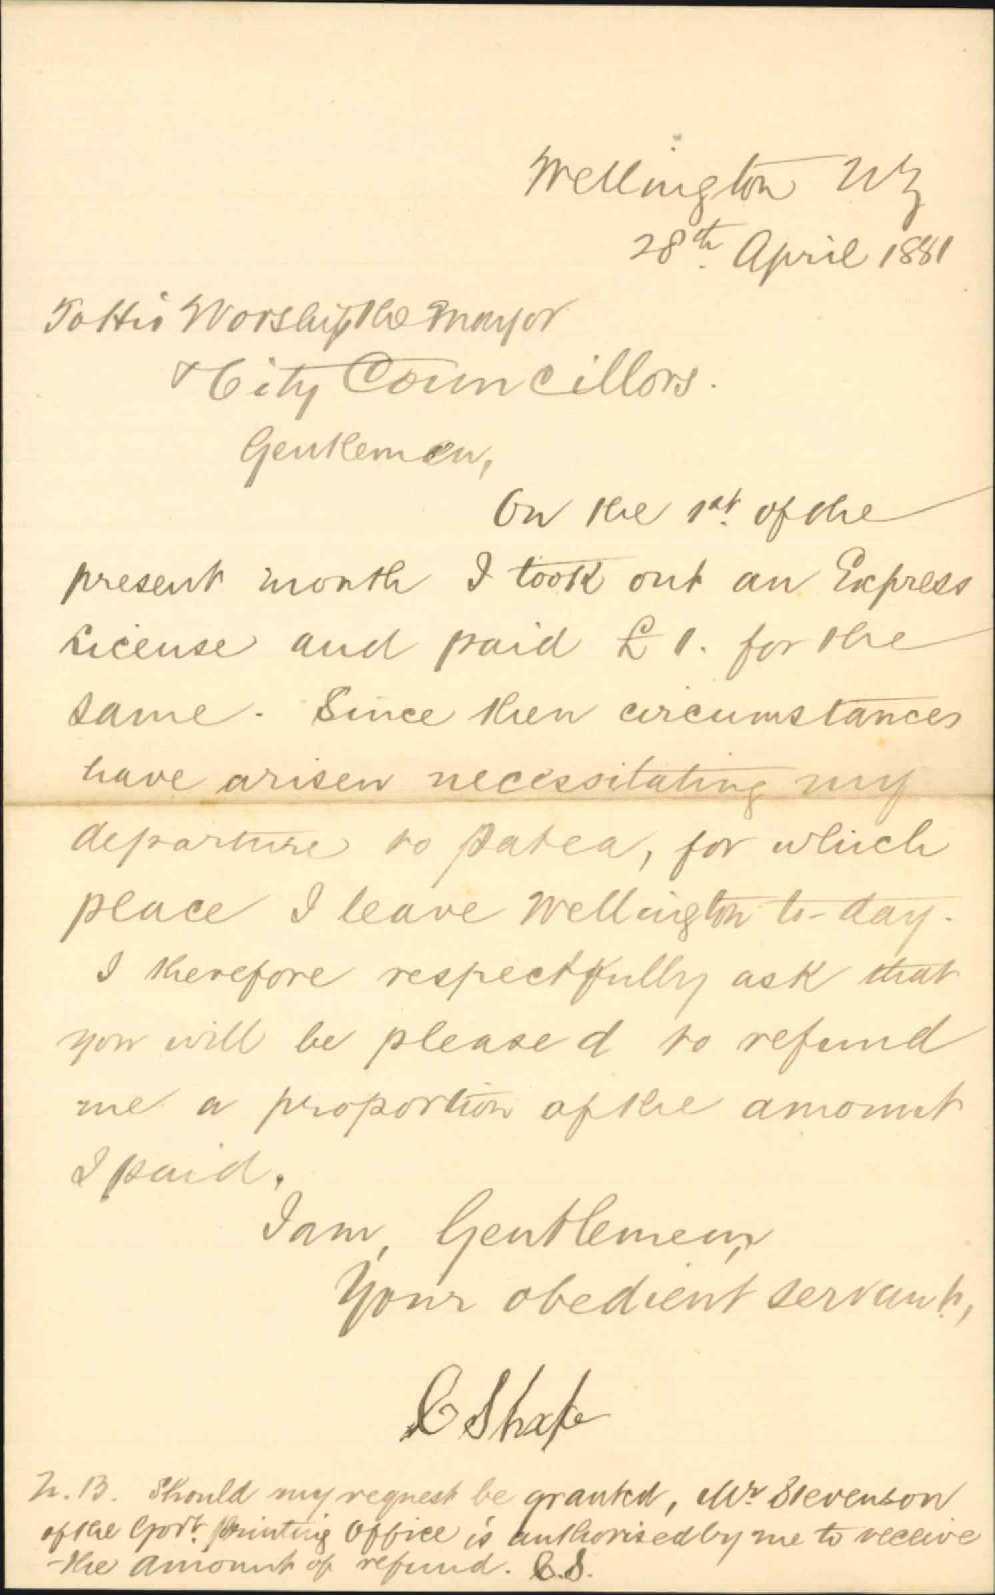 Wellington NZ
28th April 1881
To His Worship the Mayor
& City Councillors.
Gentlemen,
On the 1st of the
present month I took out an Express
License and paid £1. for the
same. Since then circumstances
have arisen necessitating my
departure to Patea, for which
place I leave Wellington to-day.
I therefore respectfully ask that
you will be pleased to refund
me a proportion of the amount
I paid.
I am, Gentlemen,
Your obedient servant,
C
N.B. Should my request be granted, Mr Stevenson
of the Govt Printing Office is authorised by me to receive
the amount of refund. C.S.